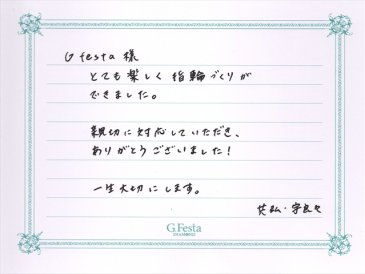 G festa 様
とても楽しく 指輪づくりが
できました。
親切に対応していただき、
ありがとうございました!
一生大切にします。
英弘・宇良々
G.Festa